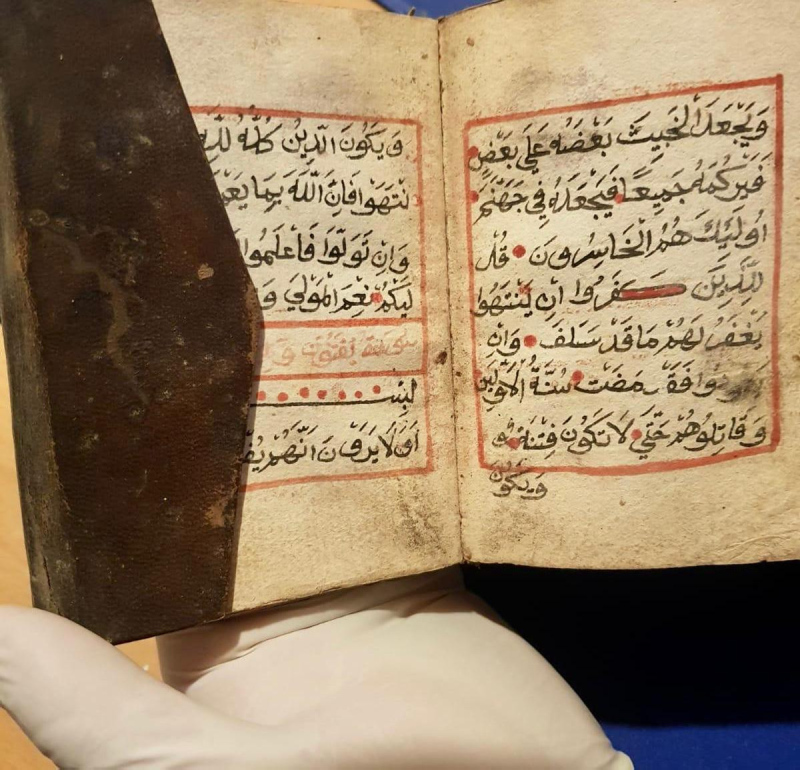 وَيَجْعَلَ الْخَبِيثَ بَعْضَهُ عَلَي بَعْضٍ
فَيَرْكُمَهُ جَمِيعًا فَيَجْعَلَهُ فِي جَهَنَّمَ
اُولَئِكَ هُمُ الْخَاسِرُونَ قُل
لِلَّذِينَ كَفَرُوا اِنْ يَنْتَهُوا
يُغْفَرْ لَهُمْ مَا قَدْ سَلَفَ وَاِنْ
فَقَدْ مَضَتْ سُنَّةُ الْاَوَّلِينَ
وَقَاتِلُوهُمْ حَتَّي لَا تَكُونَ فِتْنَةٌ و
وَيَكُون
وَيَكُونَ الدِّينُ كُلُّهُ لِلَّهِ
نْتَهَوْا فَاِنَّ اللَّهَ بِمَا يَعْم
وَاِنْ تَوَلَّوْا فَاعْلَمُوا
لَيكُمْ نِعْمَ الْمَوْلَي وَ
بس
اَوَلَا يَرَوْنَ اَنَّهُمْ يُفْ